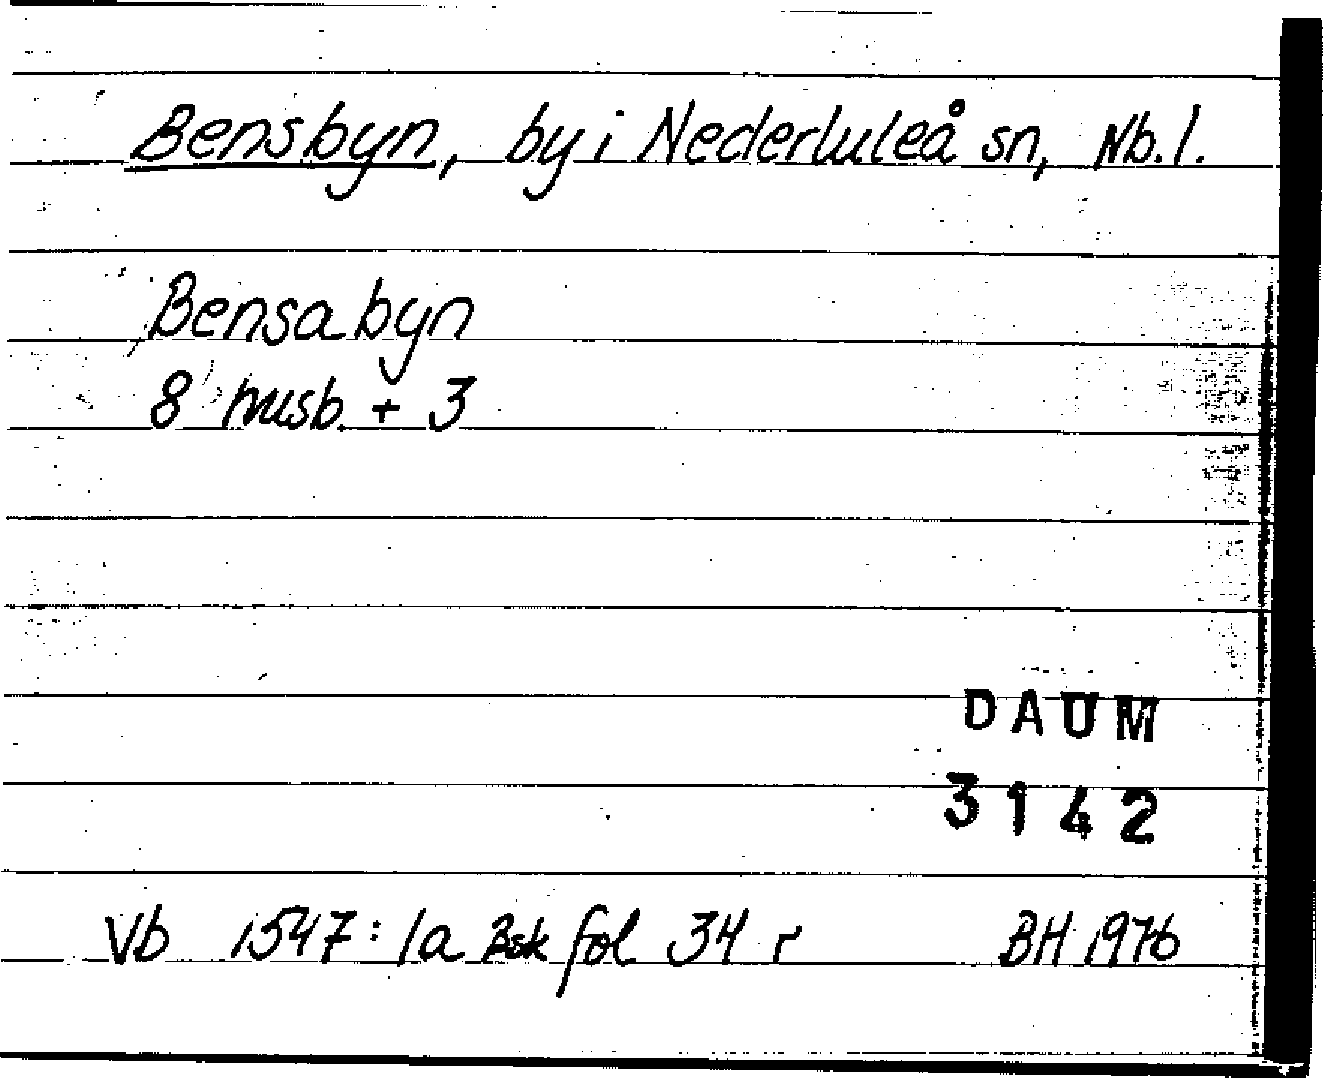 Bensbyn, by i Nederluleå sn, Nb. l.
Bensabyn
8 husb. + 3
DAUM
3142
Vb 1547: 1a Bsk fol 34 r BH 1976